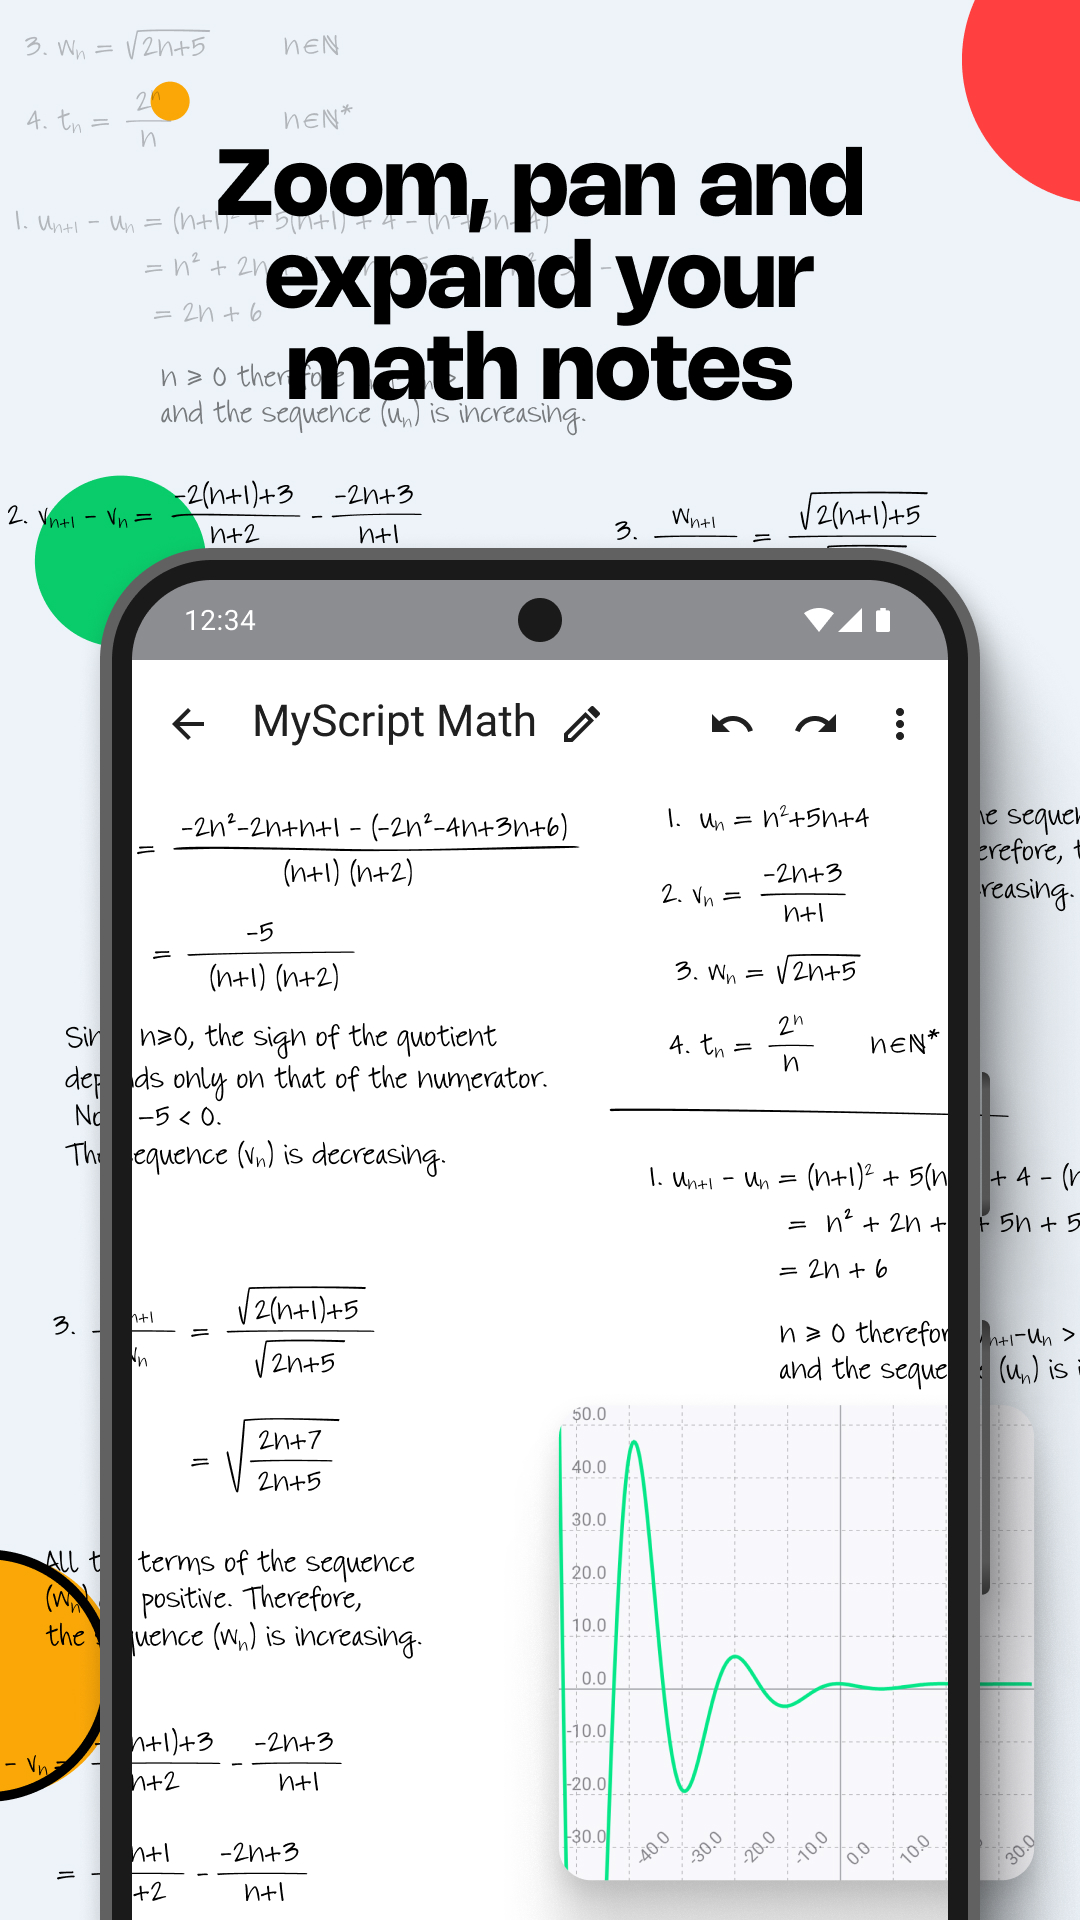 3. wₙ = √(2n+5)    n∈ℕ
4. tₙ = 2ⁿ/n    n∈ℕ*
Zoom, pan and
expand your
math notes
1. uₙ₊₁ − uₙ = (n+1)² + 5(n+1) + 4 − (n²+5n+4)
= n² + 2n
= 2n + 6
n ⩾ 0 therefore
and the sequence (uₙ) is increasing.
2. vₙ₊₁ − vₙ = (−2(n+1)+3)/(n+2) − (−2n+3)/(n+1)
3. wₙ₊₁ = √(2(n+1)+5)
12:34
MyScript Math
= (−2n²−2n+n+1 − (−2n²−4n+3n+6))/((n+1) (n+2))
= −5/((n+1) (n+2))
n⩾0, the sign of the quotient
only on that of the numerator.
−5 < 0.
(vₙ) is decreasing.
3. n+1/wₙ = √(2(n+1)+5)/√(2n+5)
= √((2n+7)/(2n+5))
All terms of the sequence
(wₙ) positive. Therefore,
the (wₙ) is increasing.
− vₙ = n+1)+3/n+2 − (−2n+3)/(n+1)
= − n+1/+2 − (−2n+3)/(n+1)
1. uₙ = n²+5n+4
2. vₙ = (−2n+3)/(n+1)
3. wₙ = √(2n+5)
4. tₙ = 2ⁿ/n    n∈ℕ*
1. uₙ₊₁ − uₙ = (n+1)² + 5(n + 4 −
= n² + 2n + + 5n + 5
= 2n + 6
n ⩾ 0 therefor n+1−uₙ >
and the (uₙ) is
50.0
40.0
30.0
20.0
10.0
0.0
-10.0
-20.0
-30.0
-40.0 -30.0 -20.0 -10.0 0.0 10.0 30.0